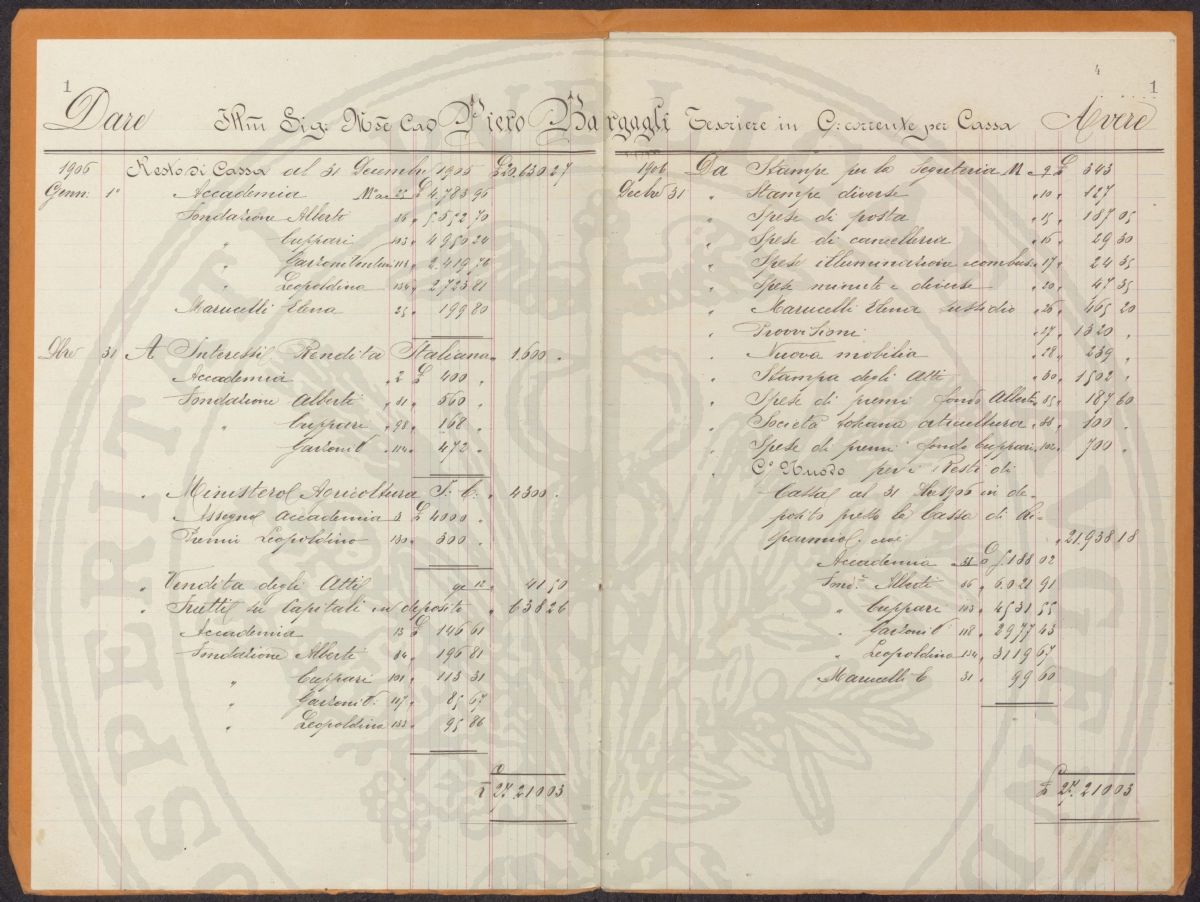 1
Dare Illm̃ Sig. Mse Cav Piero Bargagli
1906 Resto di Cassa al 31 Decembre 1905 £ 20.630.27
Genn. 1° Accademia Mo a 25 £ 4.783 96
Fondazione Alberti 86 " 5.552 70
" Cuppari 103 " 4950 24
" 2.419 76
" Leopoldina 134 " 2.723 81
Marucelli Elena 25 " 199 80
Dbre 31 A Interessi Rendita Italiana " 1.600 "
Accademia " 2 £ 400 "
Fondazione Alberti " 81 " 560 "
" Cuppari " 98 " 168 "
" Garzoni V. " 114 " 472 "
" Ministero Agricoltura I. C. " 4300 "
Assegno Accademia 3 £ 4000 "
Premii Leopoldino 130 " 300 "
" Vendita degli Atti 12 " 41 50
" Frutti su Capitali in deposito " 638 26
Accademia 13 £ 146 61
Fondazione Alberti 84 " 196 81
" Cuppari 101 " 113 31
" Garzoni V. 117 " 85 67
" Leopoldina 133 " 95 86
£ 27.210 03
4
1
Tesoriere in C: corrente per Cassa Avere
1906 Da Stampe per la Segreteria M " 9 £ 343
Decbre 31 " Stampe diverse " 10 " 127
" Spese di posta " 15 " 187 05
" Spese di cancelleria " 16 " 29 30
" Spese illuminazione e combus. " 17 " 24 35
" Spese minute e diverse " 20 " 47 35
" Marucelli Elena sussidio " 26 " 465 20
" Provvisioni " 27 " 1320 "
" Nuova mobilia " 28 " 239 "
" Stampa degli Atti " 30 " 1502 "
" Spese di premi fondo Alberti " 85 " 187 60
" Società toscana orticultura " 88 " 100 "
" Spese di premi fondo Cuppari " 102 " 700 "
" C° Nuovo per i Resti di
Cassa al 31 Dbre 1906 in de-
posito presso la Cassa di Ri-
sparmio. cioè " 21.938 18
Accademia 25 £ 5188 02
Fond.e Alberti 86 " 6.021 91
" Cuppari 103 " 4531 55
" Garzoni V. 118 " 2977 43
" Leopoldina 134 " 3119 67
Marucelli E 31 " 99 60
£ 27.210 03